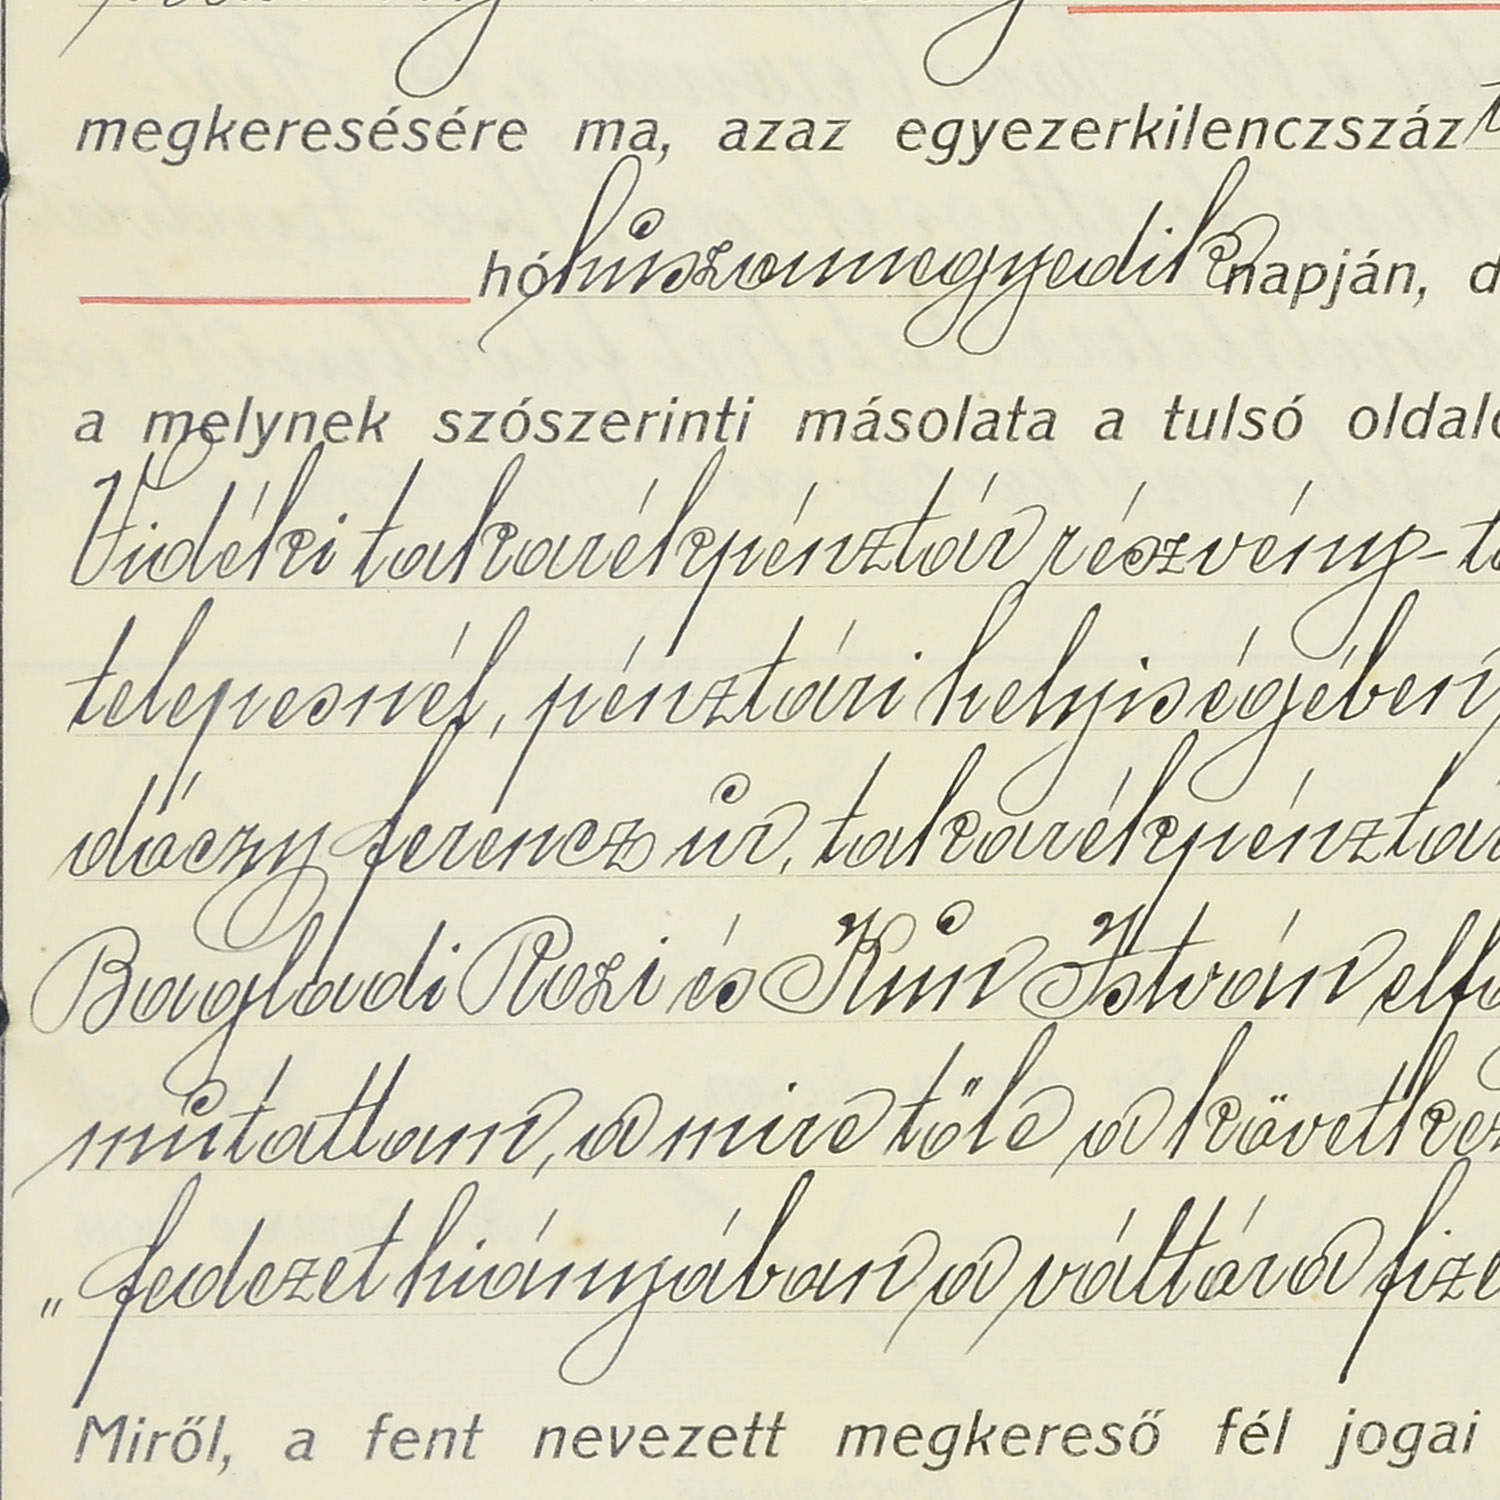 megkeresésére ma, azaz egyezerkilenczszáz
hó huszonnegyedik napján, d
a melynek szószerinti másolata a tulsó oldalo
Vidéki takarékpénztár részvény-tá
telepesnél, pénztári helyiségében
dóczy ferencz úr, takarékpénztár
Bagladi Rozi és Kun István elfo
mutattam, a mire tőle a következ
„fedezet hiányában a váltóra fize
Miről, a fent nevezett megkereső fél jogai